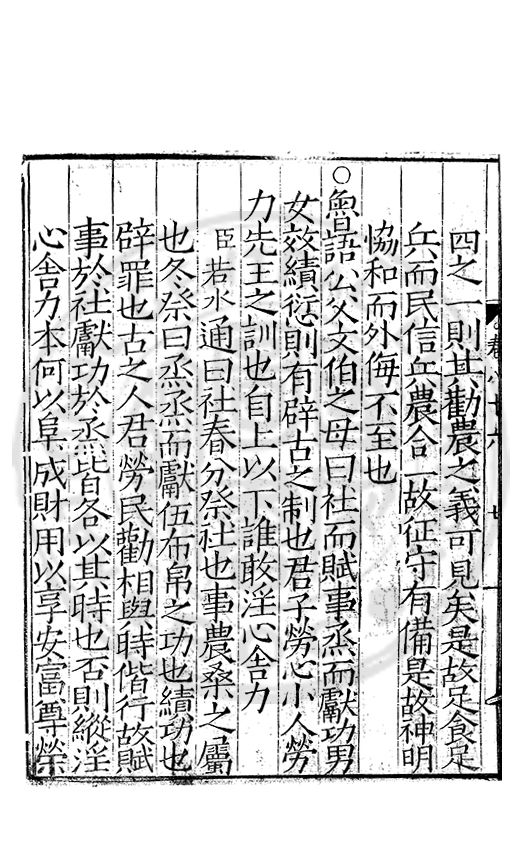 四之一則其勸農之義可見矣是故足食足
兵而民信兵農合一故征守有備是故神明
協和而外侮不至也
○魯語公父文伯之母曰社而賦事烝而獻功男
女效績愆則有辟古之制也君子勞心小人勞
力先王之訓也自上以下誰敢淫心舍力
臣若水通曰社春分祭社也事農桑之屬
也冬祭曰烝烝而獻伍布帛之功也績功也
辟罪也古之人君勞民勸相與時偕行故賦
事於社獻功於烝皆各以其時也否則縱淫
心舍力本何以阜成財用以享安富尊榮